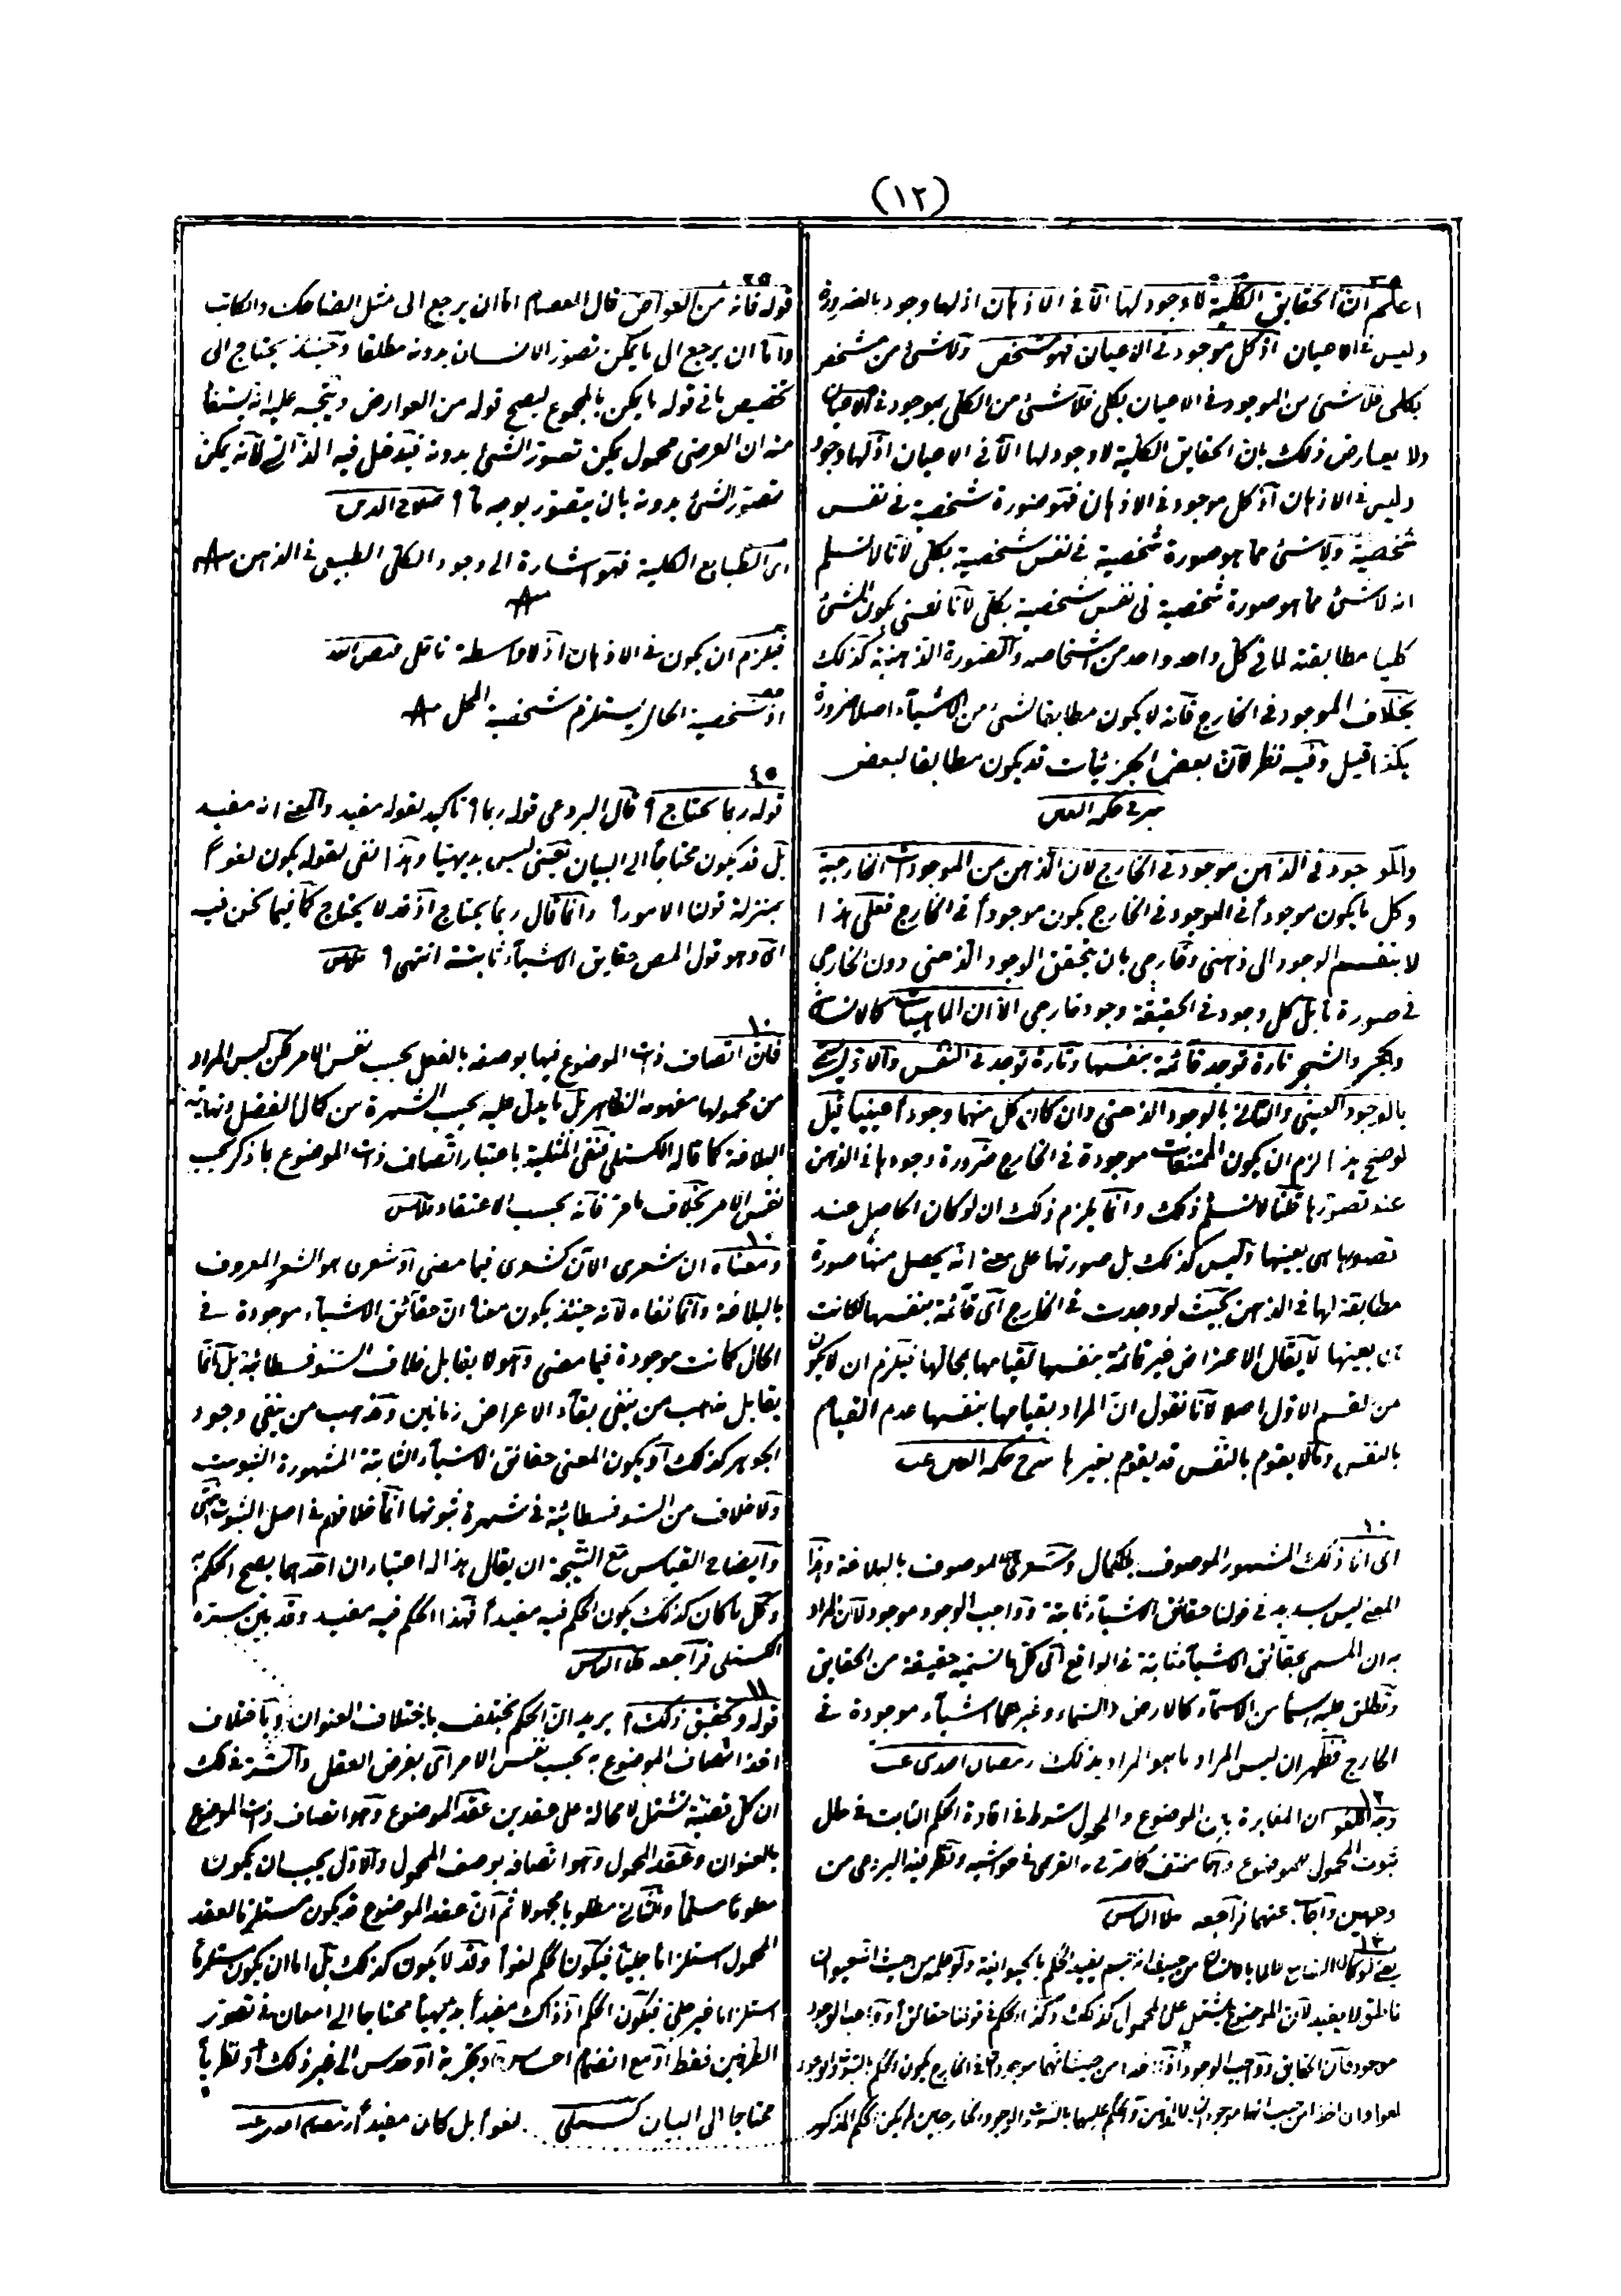 (١٢)
اعلم ان الحقايق الكلية لا وجود لها الا فى الاذهان اذ لها وجود بالضرورة
وليس فى الاعيان اذ كل موجود فى الاعيان فهو مشخص ولا شئ من مشخص
بكلى فلا شئ من الموجود فى الاعيان بكلى فلا شئ من الكلى بموجود فى الاعيان
ولا يعارض ذلك بان الحقايق الكلية لا وجود لها الا فى الاعيان اذ لها وجود
وليس فى الاذهان اذ كل موجود فى الاذهان فهو صورة شخصية فى نفس
شخصية ولا شئ مما هو صورة شخصية فى نفس شخصية بكلى لانا لا نسلم
انه لا شئ مما هو صورة شخصية فى نفس شخصية بكلى لانا نعنى بكون الشئ
كليا مطابقته لما فى كل واحد واحد من اشخاصه والصورة الذهنية كذلك
بخلاف الموجود فى الخارج فانه لا يكون مطابقا لشئ من الاشياء اصلا ضرورة
هكذا قيل وفيه نظر لان بعض الجزئيات قد يكون مطابقا لبعض
والموجود فى الذهن موجود فى الخارج لان الذهن من الموجودات الخارجية
وكل ما يكون موجودا فى الموجود فى الخارج يكون موجودا فى الخارج فعلى هذا
لا ينقسم الوجود الى ذهنى وخارجى بان يتحقق الوجود الذهنى دون الخارجى
فى صورة ما بل كل وجود فى الحقيقة وجود خارجى الا ان الماهيات كالانسان
والحجر والشجر تارة توجد قائمة بنفسها وتارة توجد فى النفس والاول يسمى
بالوجود العينى والثانى بالوجود الذهنى وان كان كل منهما وجودا عينيا قيل
لو صح هذا لزم ان يكون الممتنعات موجودة فى الخارج ضرورة وجودها فى الذهن
عند تصورها قلنا لا نسلم ذلك وانما يلزم ذلك ان لو كان الحاصل عند
تصورها هى بعينها وليس كذلك بل صورتها على معنى انه يحصل منها صورة
مطابقة لها فى الذهن بحيث لو وجدت فى الخارج اى قائمة بنفسها لكانت
هى بعينها لا يقال الاعراض غير قائمة بنفسها لقيامها بمحالها فيلزم ان لا يكون
من القسم الاول اصلا لانا نقول ان المراد بقيامها بنفسها عدم القيام
بالنفس وما لا يقوم بالنفس قد يقوم بغيرها
١٠
اى انا ذلك المشهور الموصوف بالكمال وشعرى هو الموصوف بالبلاغة وهذا
المعنى ليس بسديد فى قولنا حقائق الاشياء ثابتة وواجب الوجود موجود لان المراد
به ان المسمى بحقائق الاشياء ثابتة فى الواقع اى كل ما نسميه حقيقة من الحقايق
ونطلق عليه اسما من الاسماء كالارض والسماء وغيرهما اشياء موجودة فى
الخارج فظهر ان ليس المراد ما هو المراد بذلك رمضان افندى
١٢
وجه اللغو ان المغايرة بين الموضوع والمحمول شرط فى افادة الحكم الثابت فى ظل
ثبوت المحمول للموضوع وهما منتف كما صرح به القرمى فى حواشيه ونظر فيه البردعى من
وجهين واجاب عنهما فراجعه
١٢
ناطق لا يفيد لان الموضوع يشتمل على المحمول كذلك وكذا الحكم فى قولنا حقائق وواجب الوجود
موجود فان الحقايق وواجب الوجود اذا اخذا من حيث انهما موجودان فى الخارج يكون الحكم بالثبوت والوجود
لغوا وان اخذا من حيث انهما موجودان فى الذهن والحكم عليهما بالثبوت والوجود الخارجيين لم يكن الحكم المذكور
٢٥
قوله فانه من العوارض قال العصام اما ان يرجع الى مثل الضاحك والكاتب
واما ان يرجع الى ما يمكن تصور الانسان بدونه مطلقا وحينئذ يحتاج الى
تخصيص ما فى قوله ما يمكن بالمجموع ليصح قوله من العوارض ويتجه عليه انه يستفاد
منه ان العرضى محمول يمكن تصور الشئ بدونه فيدخل فيه الذاتى لانه يمكن
تصور الشئ بدونه بان يتصور بوجه ما صلاح الدين
اى الطبايع الكلية فهو اشارة الى وجود الكلى الطبيعى فى الذهن
فيلزم ان يكون فى الاذهان اذ لا واسطة
اذ شخصية الحال يستلزم شخصية المحل
٤٥
قوله ربما يحتاج قال البردعى قوله ربما تاكيد لقوله مفيد والمعنى انه مفيد
بل قد يكون محتاجا الى البيان يعنى ليس بديهيا وهذا نفى لقوله يكون لغوا
بمنزلة قولنا الامور وانما قال ربما يحتاج اذ قد لا يحتاج كما فيما نحن فيه
الا وهو قول المص حقايق الاشياء ثابتة انتهى
١٠
فان اتصاف ذات الموضوع فيها بوصفه بالفعل بحسب نفس الامر لكن ليس المراد
من محمولها مفهومه الظاهر بل ما يدل عليه بحسب الشهرة من كمال الفضل ونهاية
البلاغة كما قاله الكستلى فنفى المثلية باعتبار اتصاف ذات الموضوع بما ذكر بحسب
نفس الامر بخلاف ما مر فانه بحسب الاعتقاد
١٠
ومعناه ان شعرى الآن كشعرى فيما مضى او شعرى هو الشعر المعروف
بالبلاغة وانما نفاه لانه حينئذ يكون معناه ان حقائق الاشياء موجودة فى
الحال كما كانت موجودة فيما مضى وهو لا يقابل خلاف السوفسطائية بل انما
يقابل مذهب من ينفى بقاء الاعراض زمانين ومذهب من ينفى وجود
الجوهر كذلك او يكون المعنى حقائق الاشياء الثابتة المشهورة الثبوت
ولا خلاف من السوفسطائية فى شهرة ثبوتها انما خلافهم فى اصل الثبوت انتهى
وايضاح القياس مع النتيجة ان يقال هذا له اعتباران احدهما يصح الحكم به
وكل ما كان كذلك يكون الحكم فيه مفيدا فهذا الحكم فيه مفيد وقد بين سره
الكستلى فراجعه
١١
قوله وتحقيق ذلك يريد ان الحكم يختلف باختلاف العنوان وباختلاف
اخذ اتصاف الموضوع به بحسب نفس الامر اى بفرض العقل والسر فى ذلك
ان كل قضية تشتمل لا محالة على عقدين عقد الموضوع وهو اتصاف ذات الموضوع
بالعنوان وعقد المحمول وهو اتصافه بوصف المحمول والاول يجب ان يكون
معلوما مسلما والثانى مطلوبا مجهولا ثم ان عقد الموضوع قد يكون مستلزما لعقد
المحمول استلزاما جليا فيكون الحكم لغوا وقد لا يكون كذلك بل اما ان يكون مستلزما
استلزاما غير جلى فيكون الحكم اذ ذاك مفيدا بديهيا محتاجا الى امعان فى تصور
الطرفين فقط او مع انضمام احساس او تجربة او حدس الى غير ذلك او نظريا
محتاجا الى البيان كستلى
لغوا بل كان مفيدا رمضان افندى